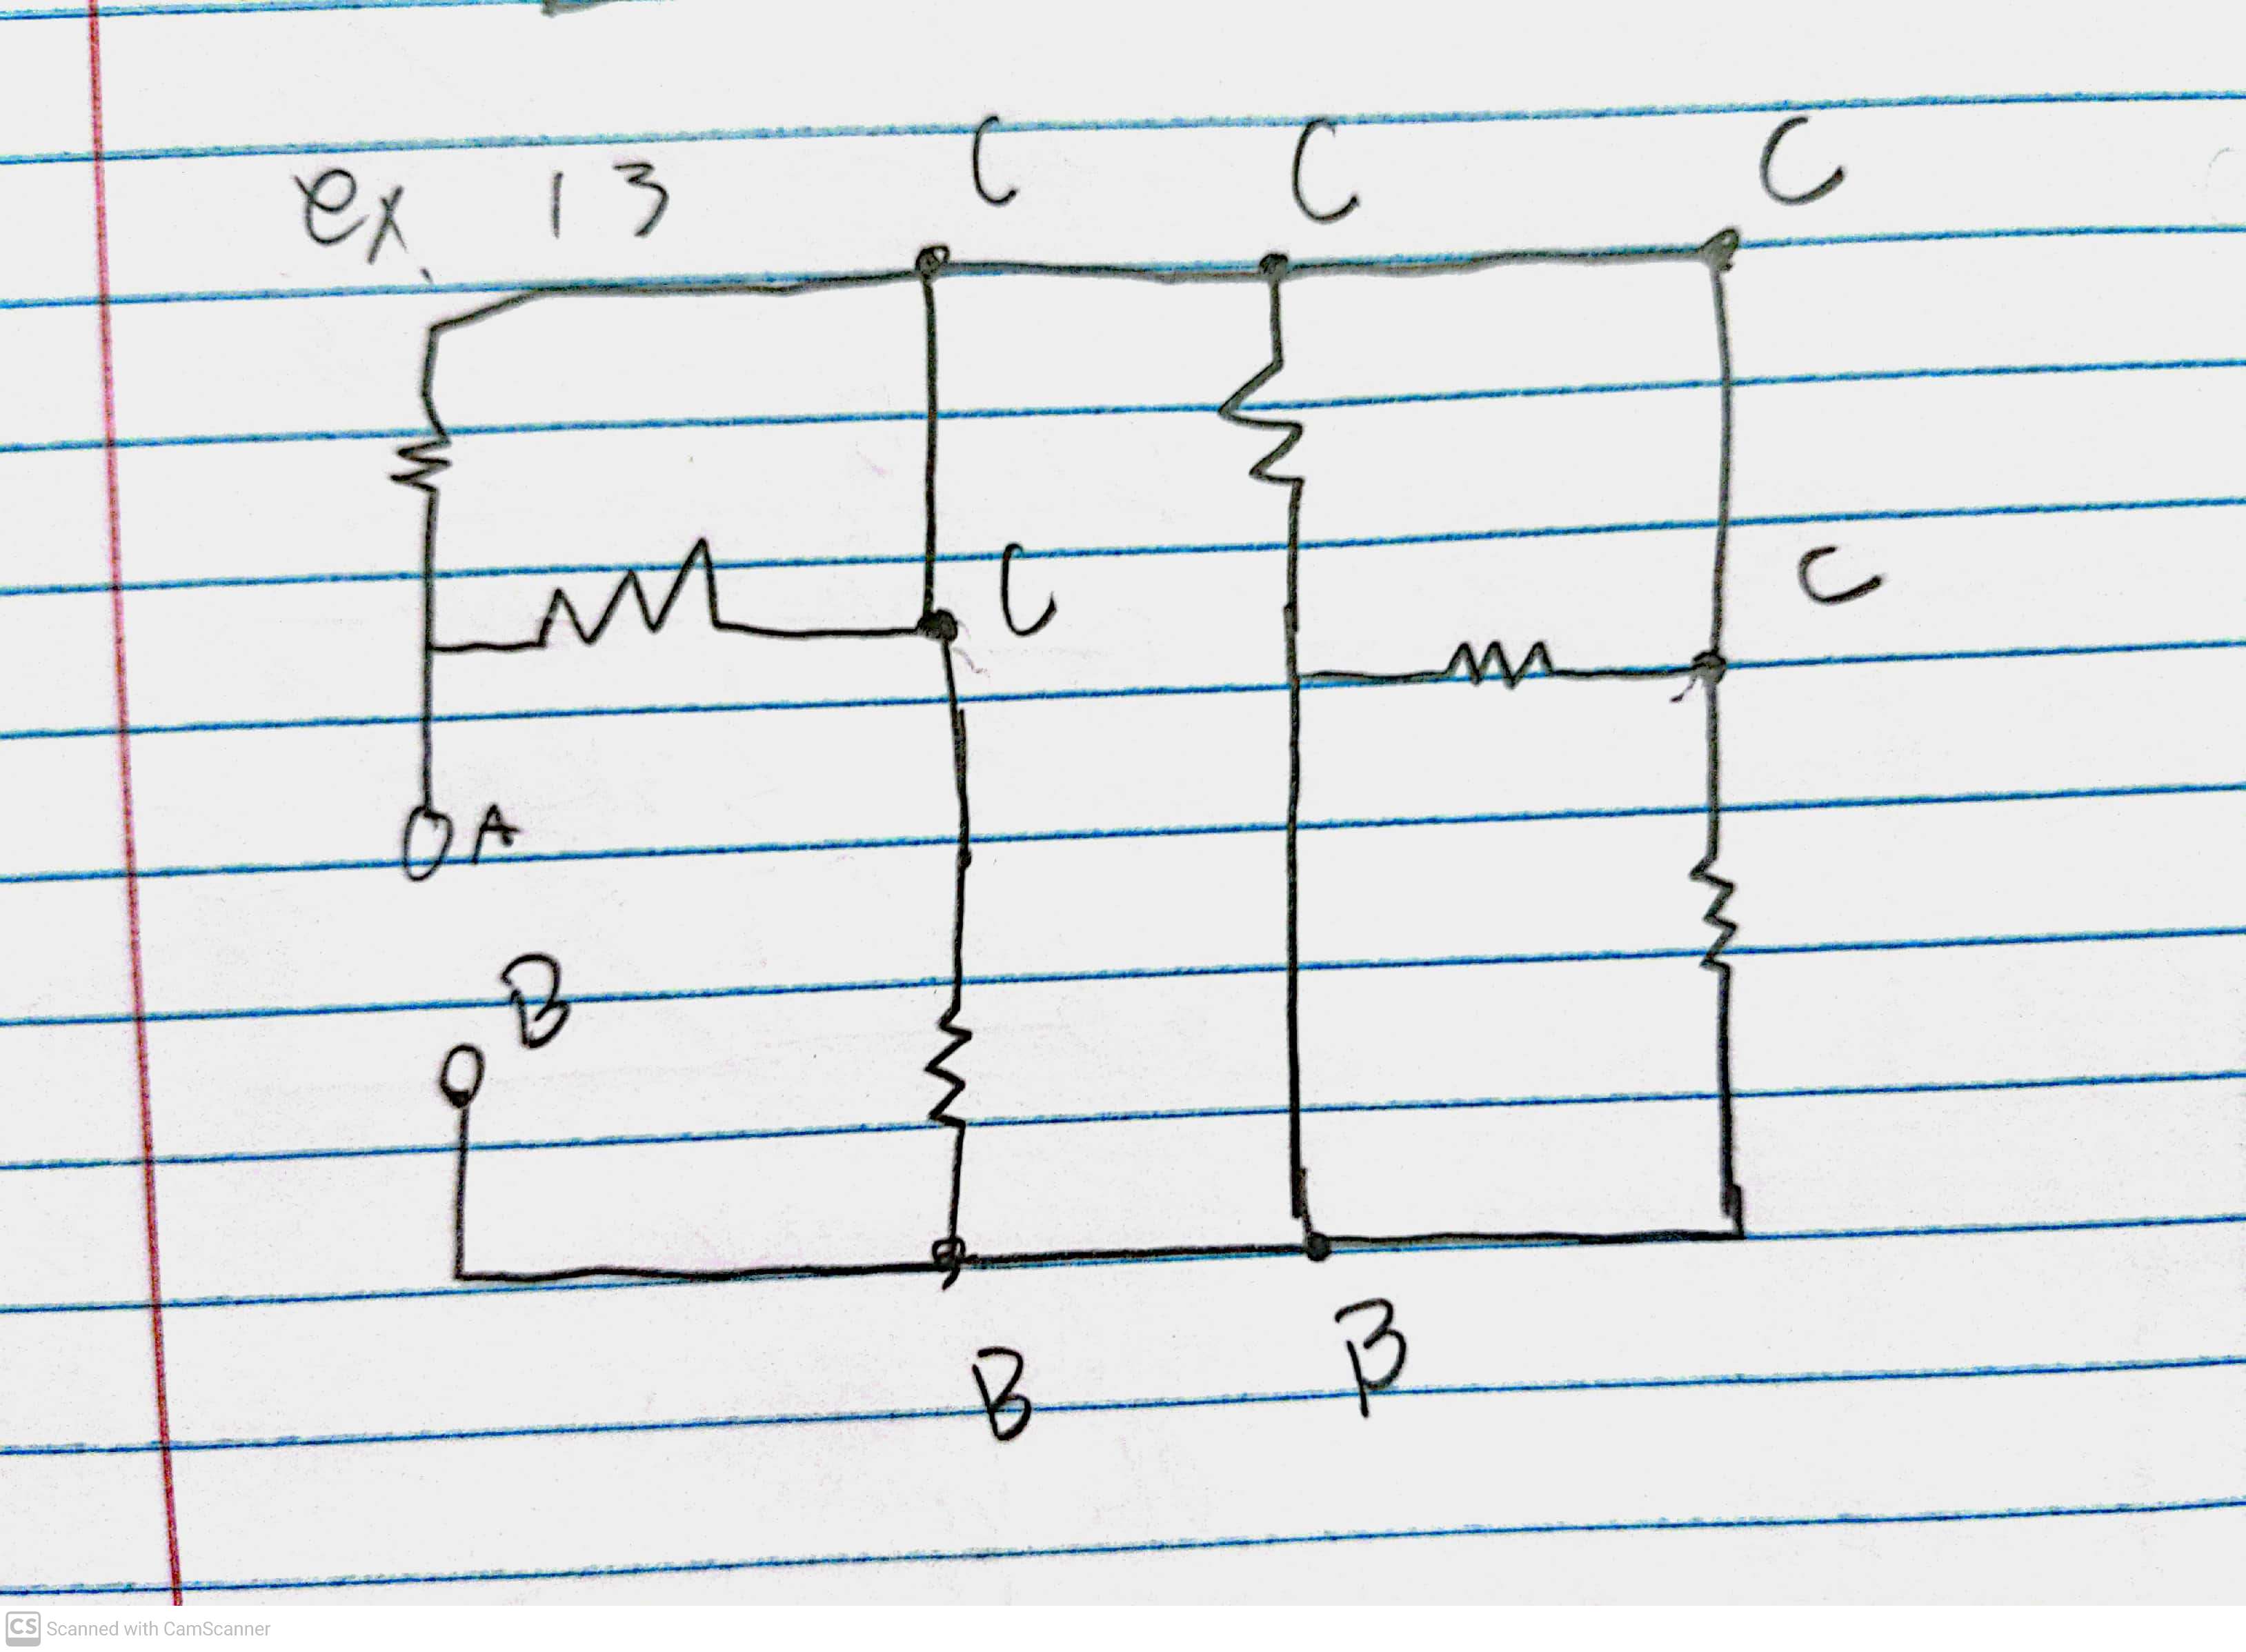 ex. 13
C C C
C C
A
B
B B
CS Scanned with CamScanner